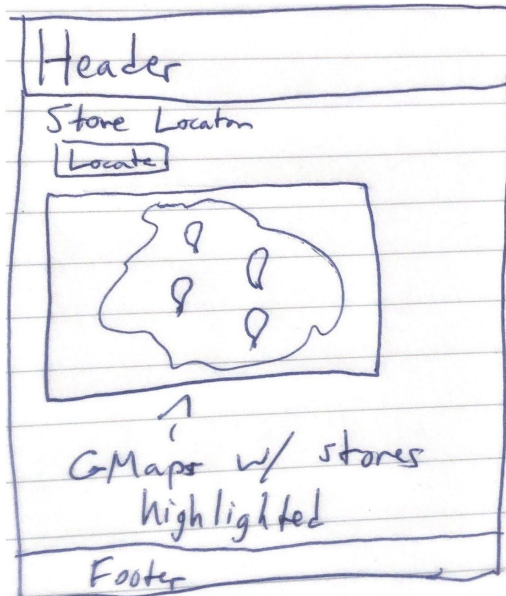 Header
Store Locator
Locate
GMaps w/ stores
highlighted
Footer